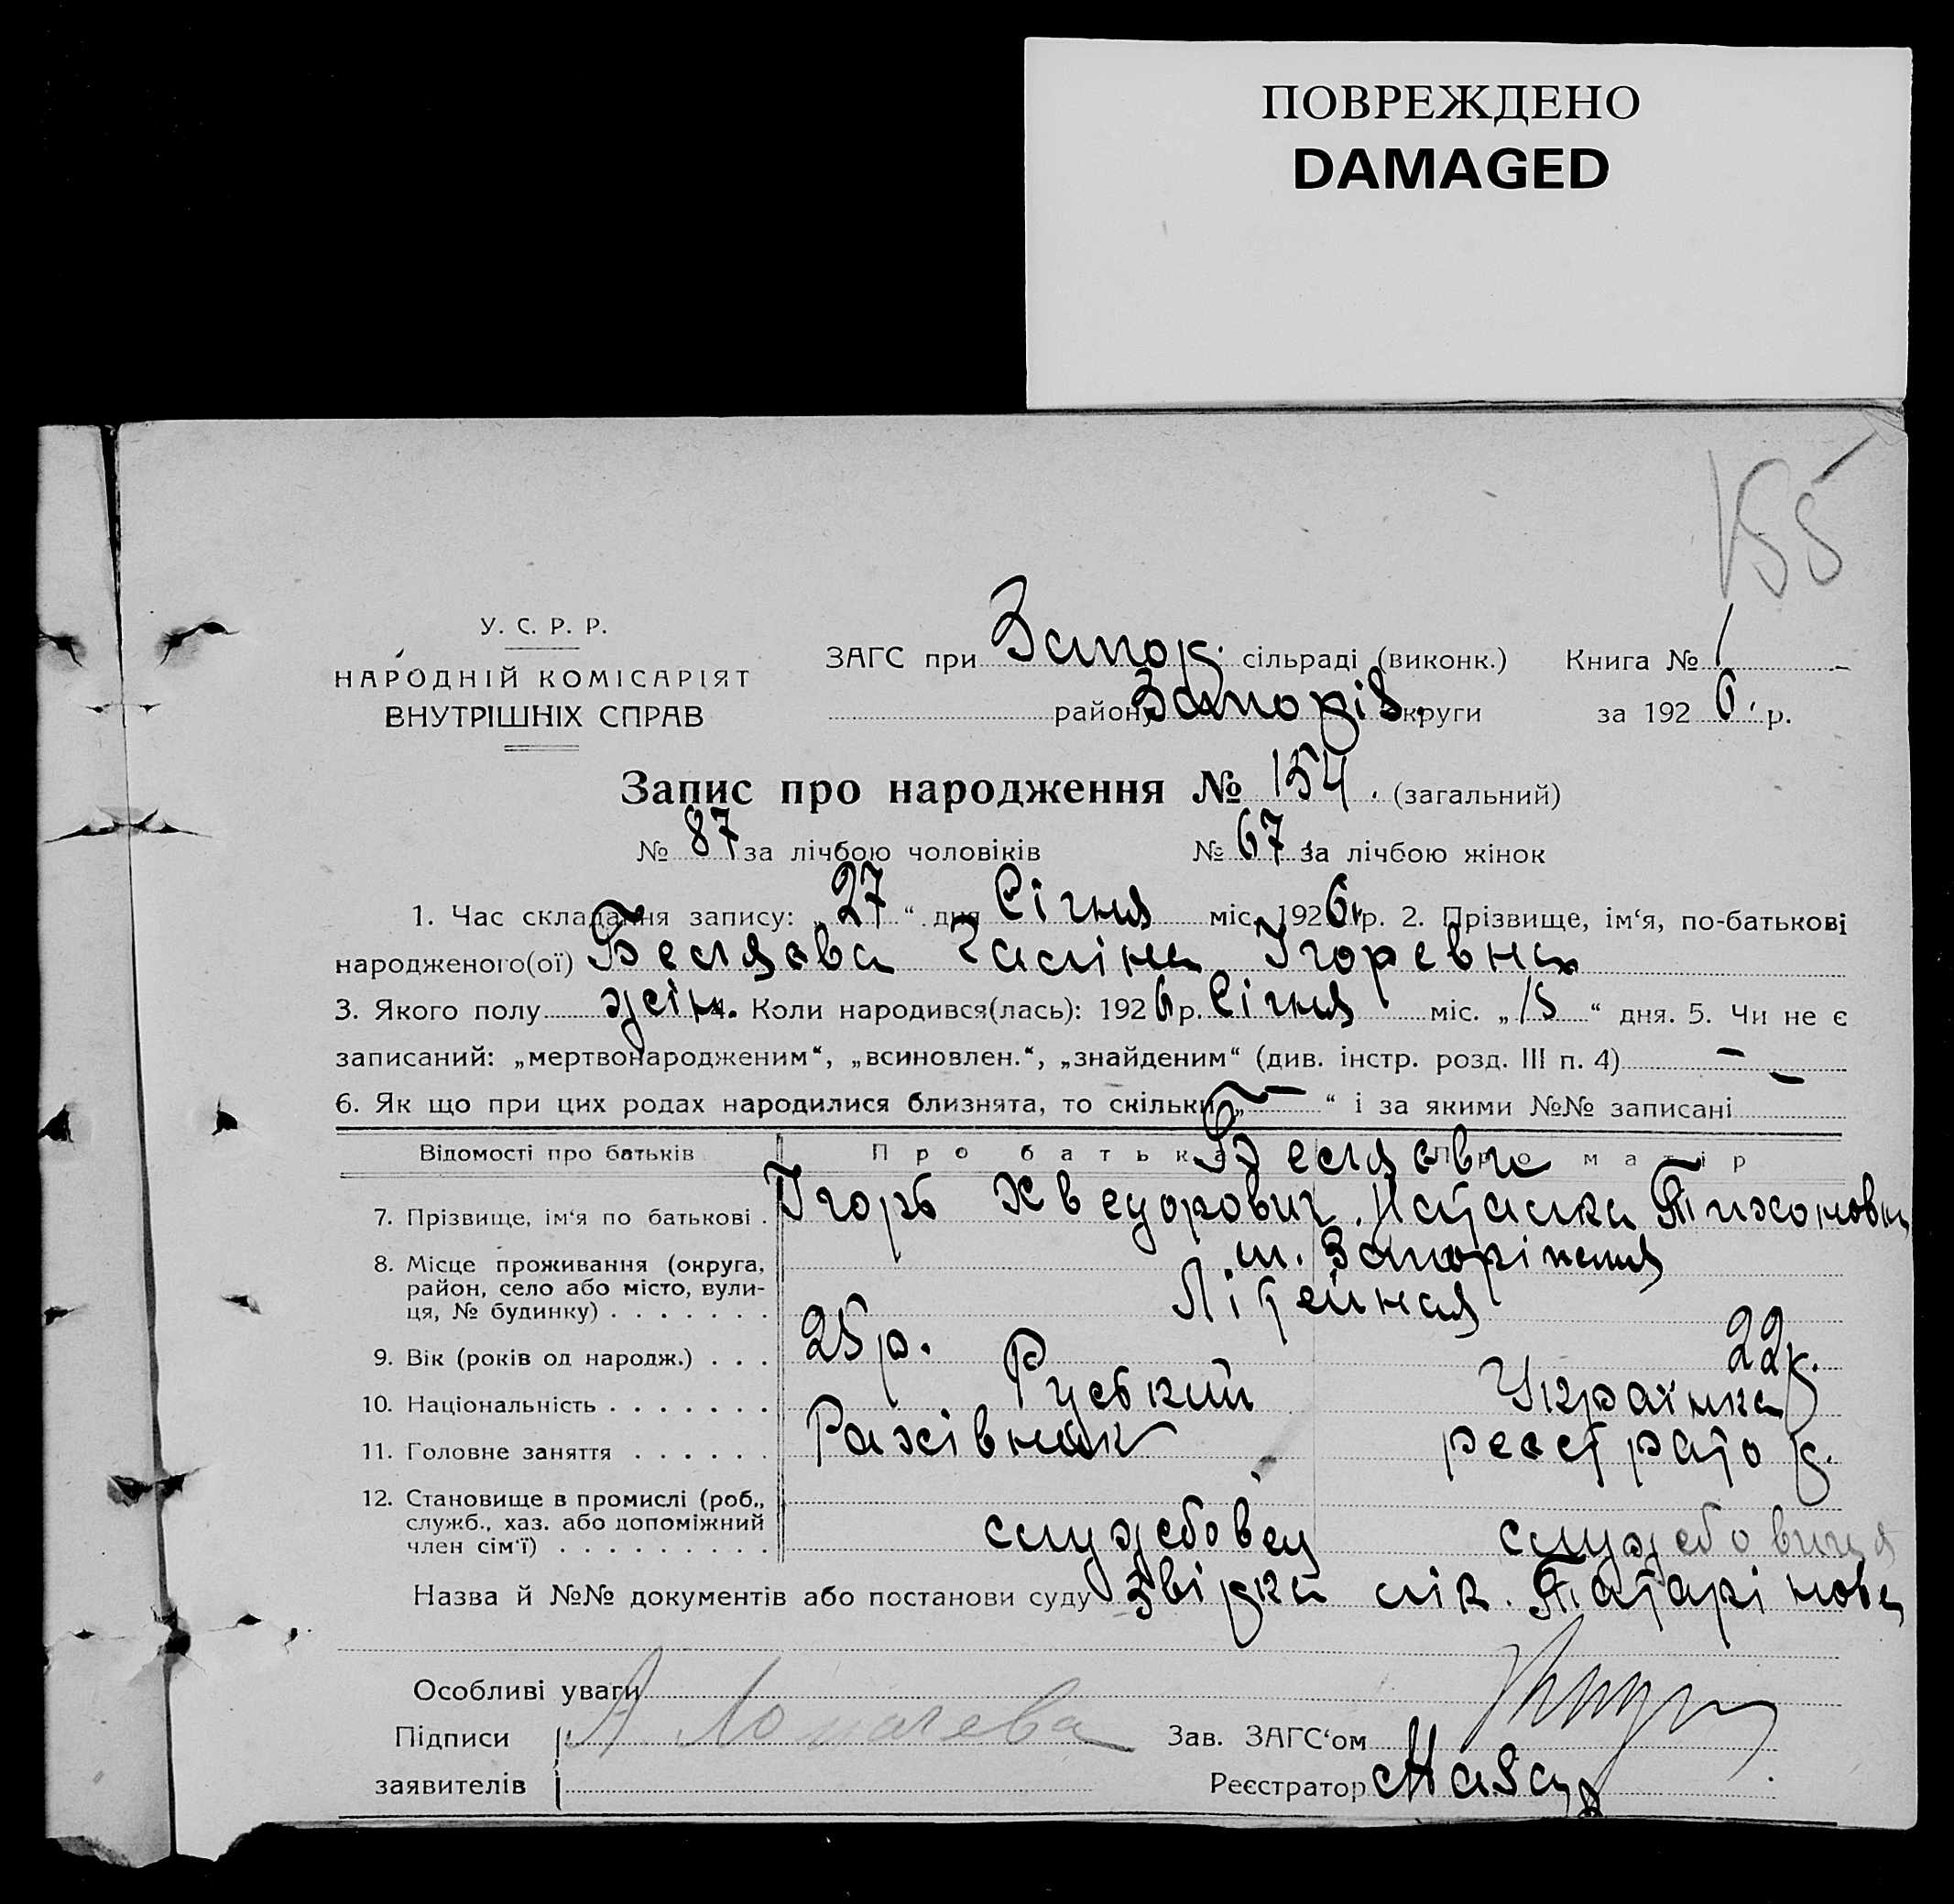 ПОВРЕЖДЕНО
DAMAGED
155
У. С. Р. Р.
НАРОДНІЙ КОМІСАРІЯТ
ВНУТРІШНІХ СПРАВ
ЗАГС при Запор. сільраді (виконк.) Книга № 1
району Запоріз. округи за 1926 р.
Запис про народження № 154. (загальний)
№ 87 за лічбою чоловіків № 67 за лічбою жінок
1. Час складання запису: „27“ дня Січня міс. 1926 р. 2. Прізвище, ім‘я, по-батькові
народженого(ої) Беляєва Галіна Ігоревна
3. Якого полу жін. 4. Коли народився(лась): 1926 р. Січня міс. „15“ дня. 5. Чи не є
записаний: „мертвонародженим“, „всиновлен.“, „знайденим“ (див. інстр. розд. III п. 4) —
6. Як що при цих родах народилися близнята, то скільки „—“ і за якими №№ записані —
Відомості про батьків Про батька Про матір
Беляєви
7. Прізвище, ім‘я по батькові . Ігорь Хведорович. Наталка Тихоновна
8. Місце проживання (округа, м. Запоріжжя
район, село або місто, вули-
ця, № будинку) . . . . . . . Літейная
9. Вік (років од народж.) . . . 25 р. 22 р.
10. Національність . . . . . . . Руський Українка
11. Головне заняття . . . . . . Рахівник реєстратор.
12. Становище в промислі (роб.,
служб., хаз. або допоміжний
член сім‘ї) . . . . . . . . . службовец службовиця
Назва й №№ документів або постанови суду Звідка лік. Татарінова
Особливі уваги
Підписи А Ломачева Зав. ЗАГС‘ом
заявителів Реєстратор